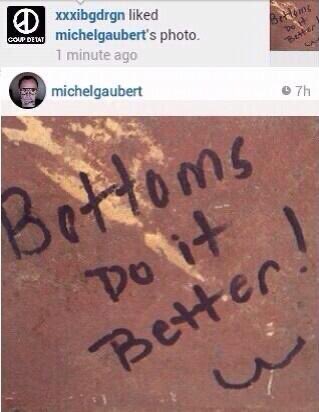 xxxibgdrgn liked
michelgaubert's photo.
1 minute ago
COUP D'ETAT
Bottoms
Do it
Better!
michelgaubert
7h
Bottoms
Do it
Better!